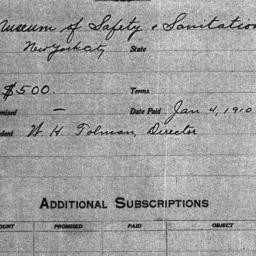 Museum of Safety & Sanitation
New York City State
$500. Terms
mised — Date Paid Jan 4, 1910
dent W. H. Tolman, Director
ADDITIONAL SUBSCRIPTIONS
OUNT PROMISED PAID OBJECT